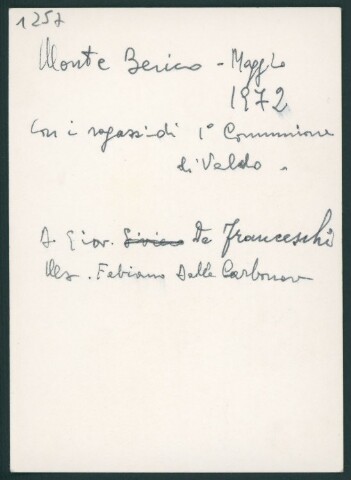 1257
Monte Berico - Maggio
1972
Con i ragazzi di 1° Comunione
di Valdo.
D. Giov. De Franceschi
Fabiano Dalle Carbonare